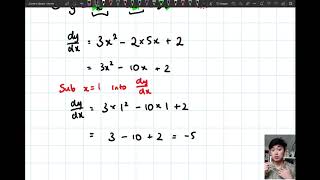 dy/dx = 3x² - 2×5x + 2
= 3x² - 10x + 2
Sub x=1 into dy/dx
dy/dx = 3×1² - 10×1 + 2
= 3 - 10 + 2 = -5